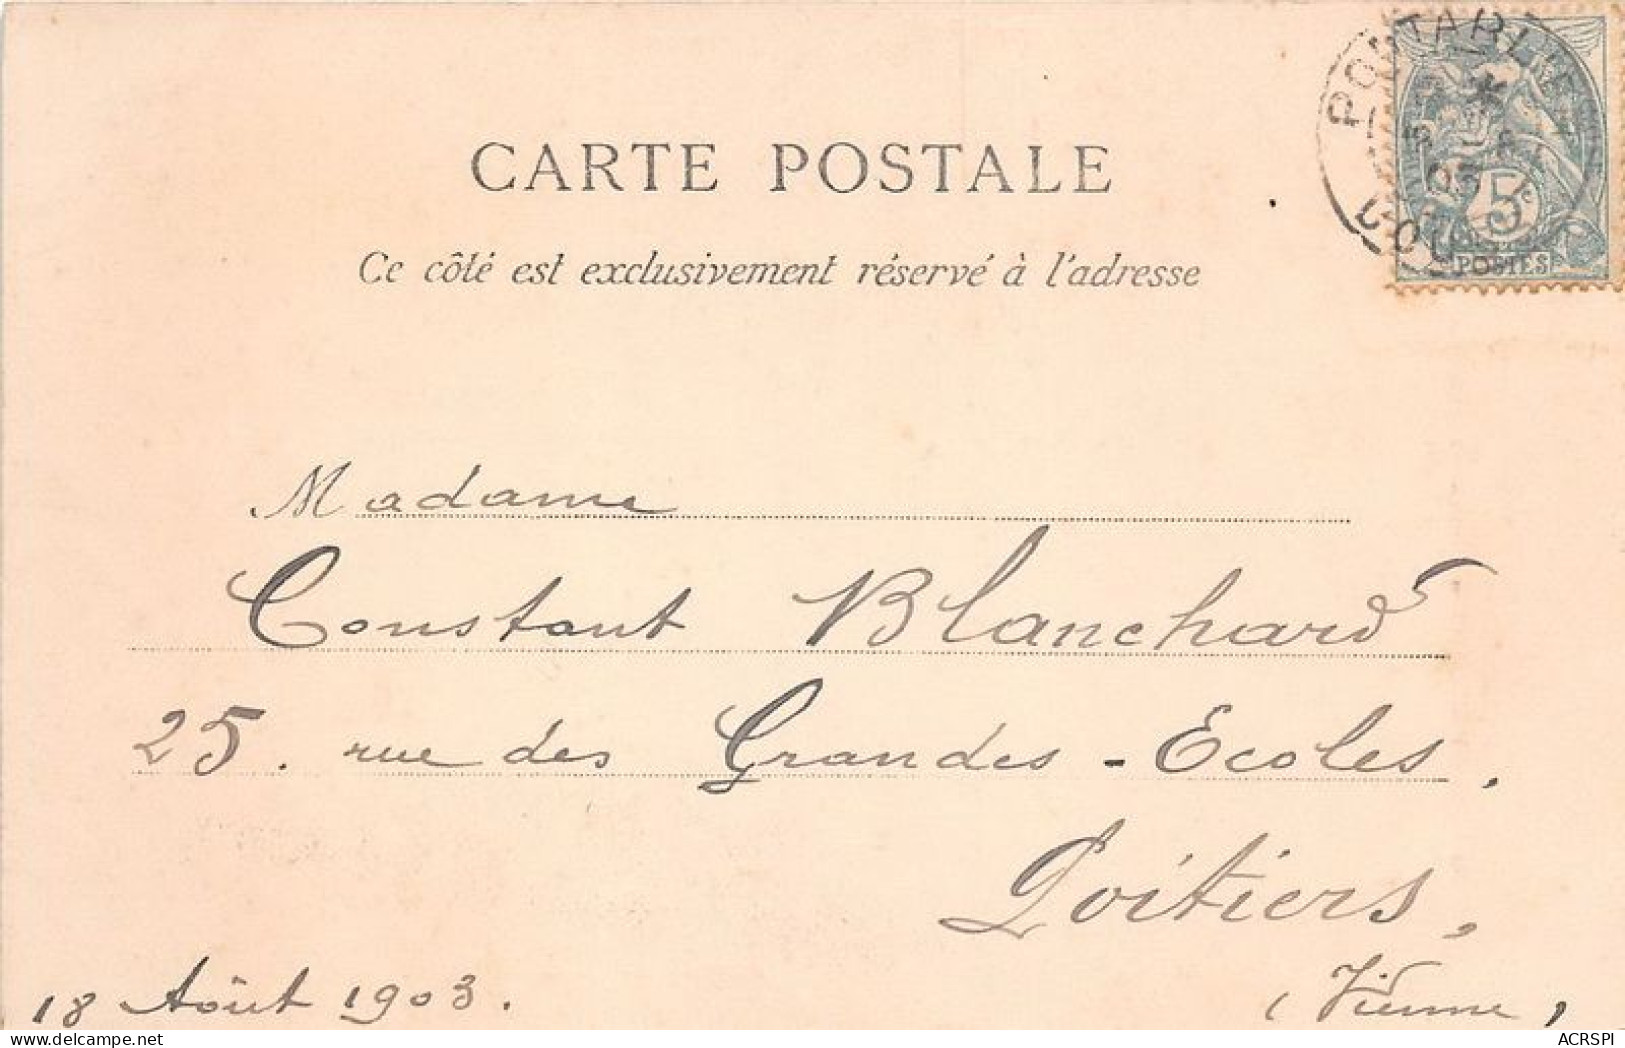 CARTE POSTALE
Ce côté est exclusivement réservé à l'adresse
PONTARLIER
DOU
03
5c
POSTES
Madame
Constant Blanchard
25. rue des Grandes-Ecoles,
Poitiers,
(Vienne)
18 Août 1903.
ACRSPI